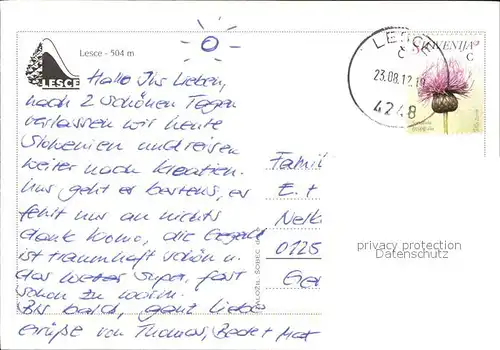 Lesce - 504 m
LESCE
Hallo Ihr Lieben,
nach 2 schönen Tagen
verlassen wir heute
Slowenien und reisen
weiter nach Kroatien.
Uns geht es bestens, es
fehlt uns an nichts
dank Womo, die Gegend
ist traumhaft schön u.
das Wetter super, fast
schon zu warm.
Bis bald, ganz liebe
Grüße von Thomas, Beate + Max
ZALOŽIL: ŠOBEC
LESCE
23.08.12
4248
SLOVENIJA
C
Famil
E. +
Nelk
0125
Ger
privacy protection
Datenschutz